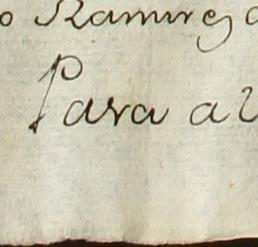 o Ramires
Para a